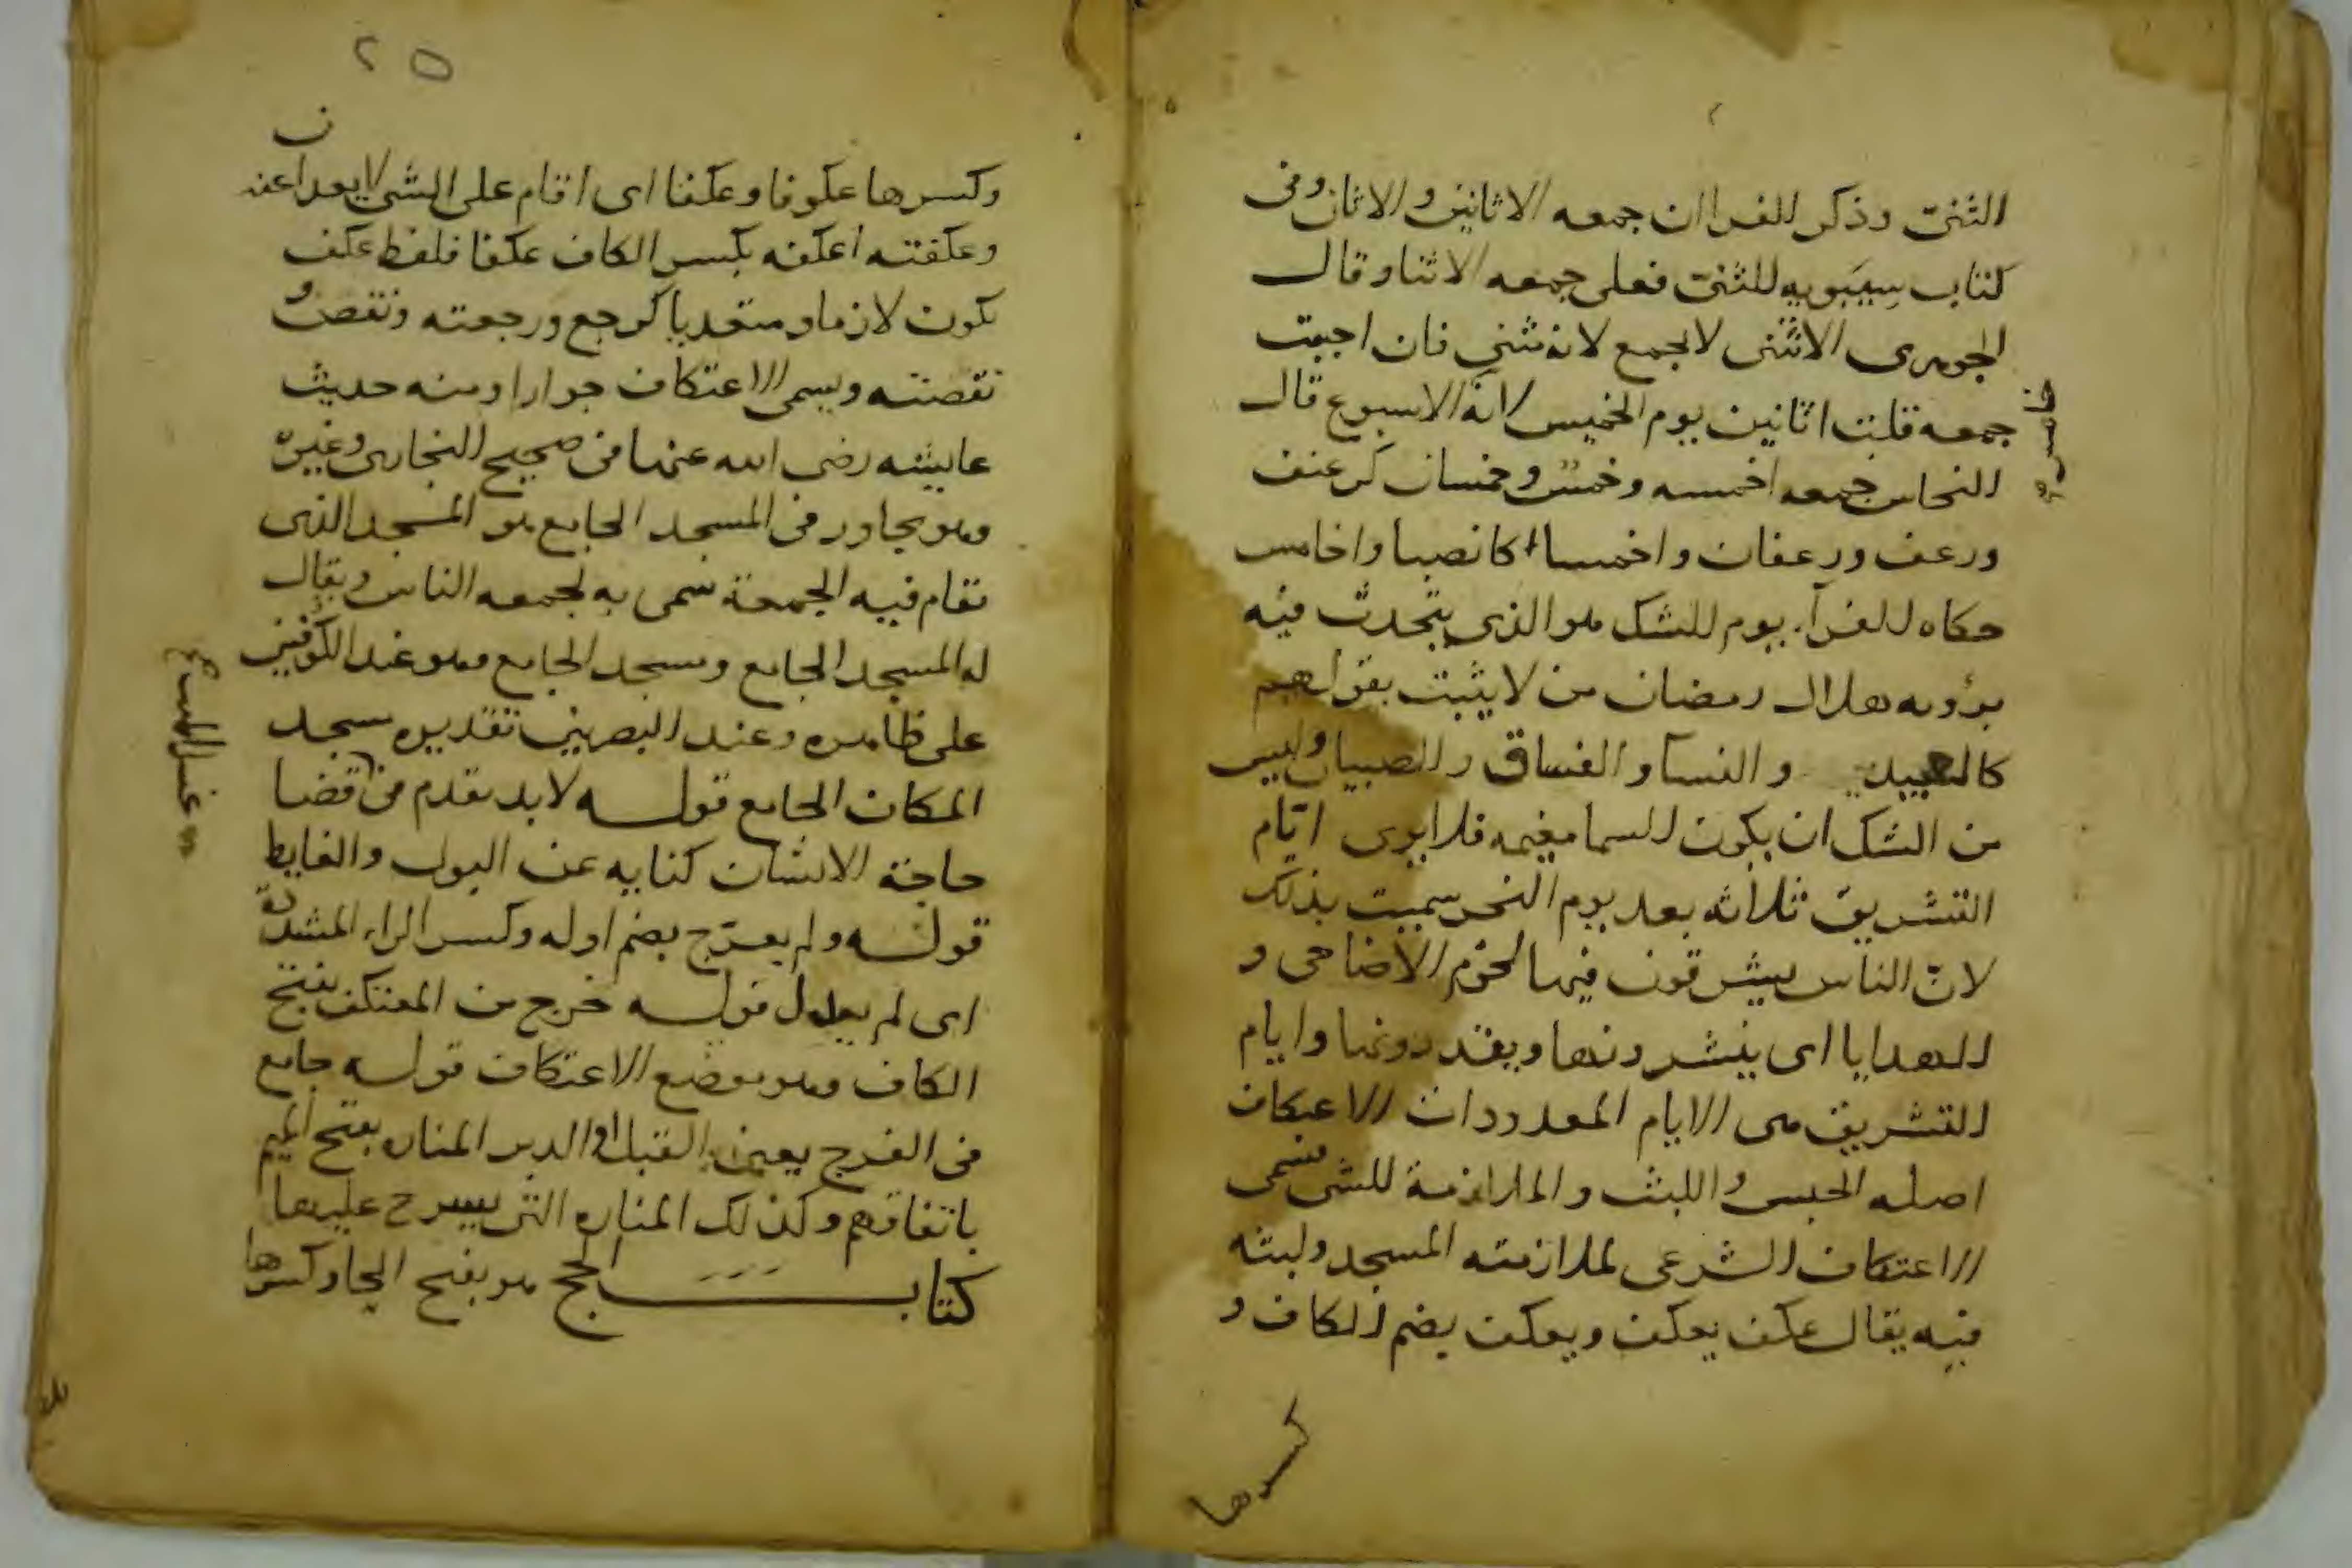 الثنى وذكر الفرا ان جمعه الاثانين والاثان وفى
كتاب سيبويه للثنى فعلى جمعه الاثنا وقال
الجوهرى الاثنى لا يجمع لانه مثنى فان احببت
جمعه قلت اثانين يوم الخميس لانه الاسبوع قال
النحاس جمعه اخمسه وخمس وخمسان كرغيف
ورغف ورغفان واخمسا كانصبا واخامس
حكاه الفرآ. يوم الشك هو الذى يتحدث فيه
برؤيه هلال رمضان من لا يثبت بقولهم
كالعبيد والنسآ والفساق والصبيان وليس
من الشك ان يكون السما مغيمه فلا يرى ايّام
التشريق ثلاثه بعد يوم النحر سميت بذلك
لانّ الناس يشرقون فيها لحوم الاضاحى و
الهدايا اى ينشرونها ويقددونها وايام
التشريق هى الايام المعدودات الاعتكاف
اصله الحبس واللبث والملازمة للشى سمى
الاعتكاف الشرعى لملازمته المسجد ولبثه
فيه يقال عكف يعكف ويعكف بضم الكاف و
كسرها
٢٥
وكسرها عكوفا وعكفا اى اقام على الشى لا يعدا عنه
وعكفته اعكفه بكسر الكاف عكفا فلفظ عكف
يكون لازما ومتعديا كرجع ورجعته ونقص و
نقصته ويسمى الاعتكاف جوارا ومنه حديث
عايشه رضى الله عنها فى صحيح البخارى وغيره
وهو يجاور فى المسجد الجامع هو المسجد الذى
تقام فيه الجمعة سمى به لجمعه الناس ويقال
له المسجد الجامع ومسجد الجامع وهو عند الكوفيين
على ظاهره وعند البصريين تقديره مسجد
المكان الجامع قوله لابد تقدم فى قضا
حاجة الانسان كنايه عن البول والغايط
قوله ولم يعرّج بضم اوله وكسر الراء المشددة
اى لم يعدل قوله خرج من المعتكف بفتح
الكاف وهو موضع الاعتكاف قوله جامع
فى الفرج يعنى القبل او الدبر المناره بفتح الميم
باتفاقهم وكذلك المناره التى يسرح عليها
كتاب الحج هو بفتح الحا وكسرها